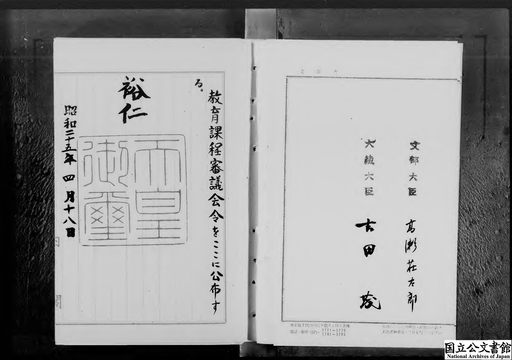 教育課程審議会令をここに公布す
る。
裕仁
天皇
御璽
昭和二十五年四月十八日
文部大臣 高瀬荘太郎
大蔵大臣
吉田茂
国立公文書館
National Archives of Japan